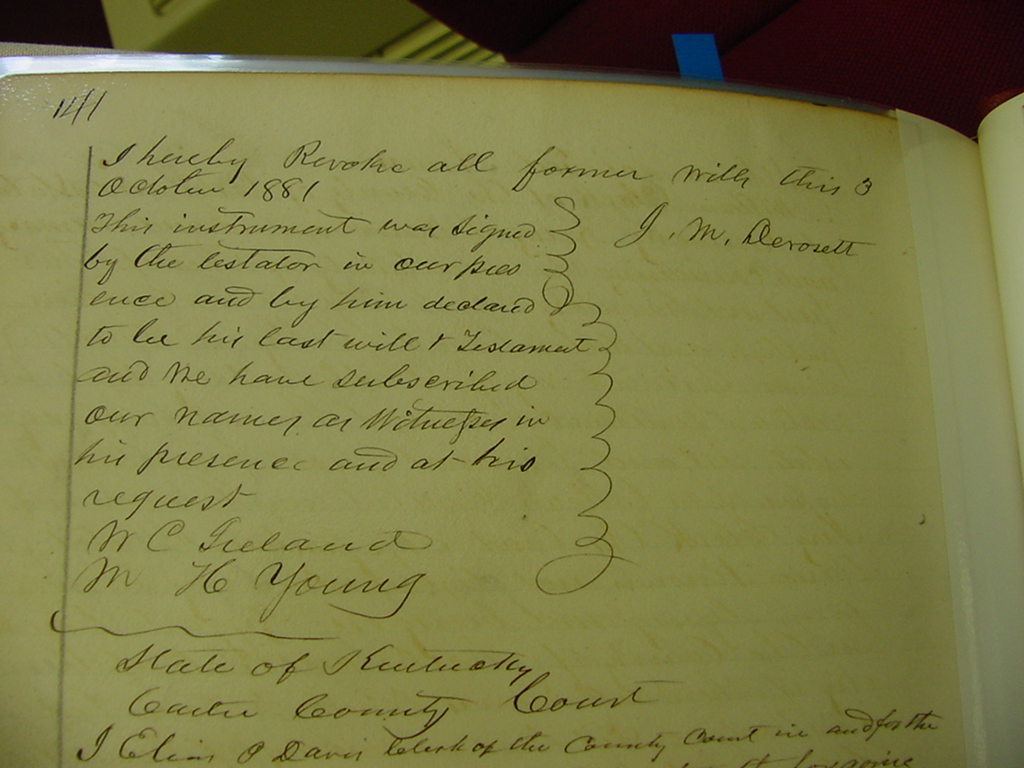 141
I hereby Revoke all former Wills this 3
October 1881
This instrument was signed
by the testator in our pres
J. M. Derosett
ence and by him declared
to be his last will & Testament
and We have Subscribed
our names as Witnesses in
his presence and at his
request
W C Ireland
M H Young
State of Kentucky
Carter County Court
I Davis Clerk of the County Court in and for the